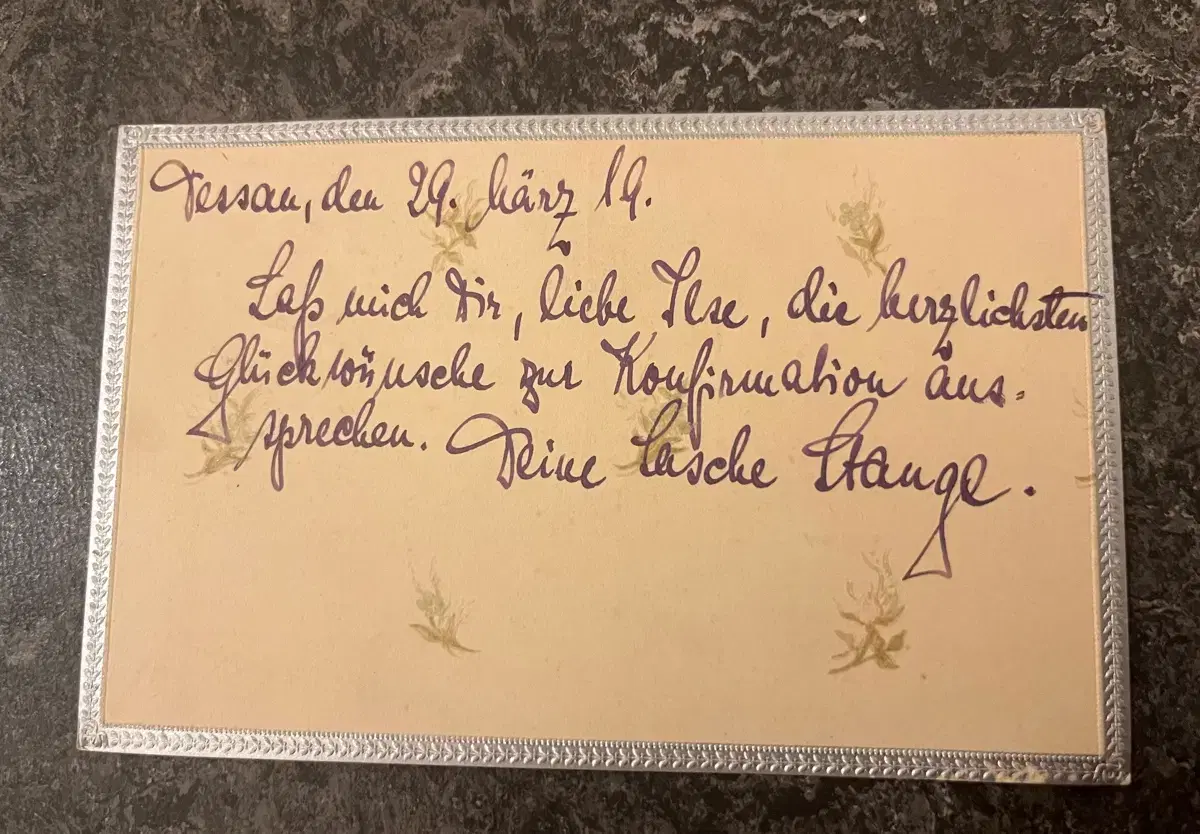 Dessau, den 29. März 19.
Laß mich Dir, liebe Ilse, die herzlichsten
Glückwünsche zur Konfirmation aus-
sprechen. Deine Lasche Stange.